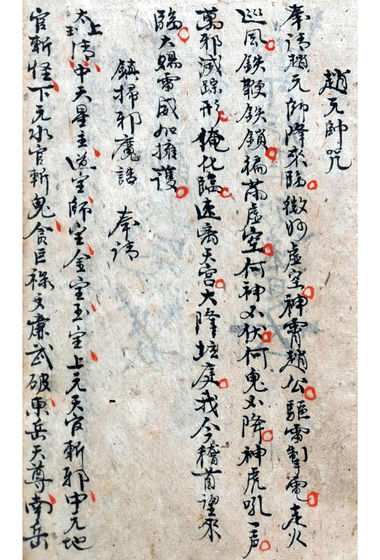 趙元帥咒
奉請趙元帥降來臨微妙虛空神霄趙公驅雷掣電走火
巡風鉄鞭鉄鎖徧滿虛空何神不伏何鬼不降神虎吼一声
萬邪滅踪形掩化臨速离天宮大降壇庭我今稽首望來
臨大賜雷威加擁護
鎮掃邪魔誥 奉請
太上清中天星主道宝師宝金宝玉宝上元天官斬邪中元地
官斬怪下元水官斬鬼貪巨祿文廉武破東岳天尊南岳